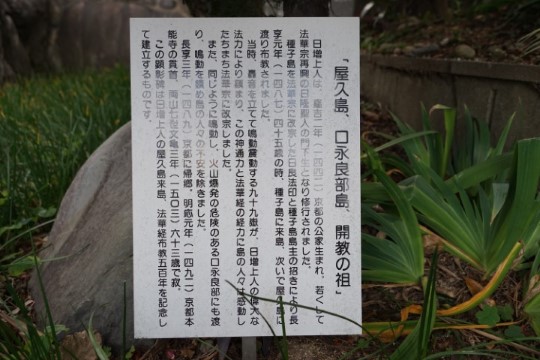 『屋久島、口永良部島、開教の祖』
日増上人は、嘉吉二年(一四四二)京都の公家生まれ、若くして
法華宗再興の日隆聖人の門下生となり修行されました。
種子島を法華宗に改宗した日良法印と種子島島主の招きにより長
享元年(一四八七)四十五歳の時、種子島に来島、次いで屋久島に
渡り布教されました。
当時、轟音を立てて鳴動震動する九十九嶽が、日増上人の偉大な
法力により鎮まり、この神通力と法華経の経力に島の人々は感動し
たちまち法華宗に改宗しました。
また、同じように鳴動し、火山爆発の危険のある口永良部にも渡
り、鳴動を鎮め島の人々の不安を除きました。
長享三年(一四八九)京都に帰郷、明応元年(一四九二)京都本
能寺の貫首、岡山七
文亀三年(一五〇三)六十三歳で寂。
この顕彰碑は日増上人の屋久島来島、法華経布教五百年を記念し
て建立するものです。